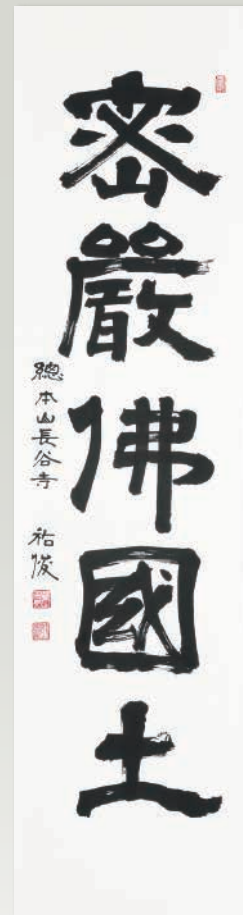 密嚴佛國土
總本山長谷寺 祐俊